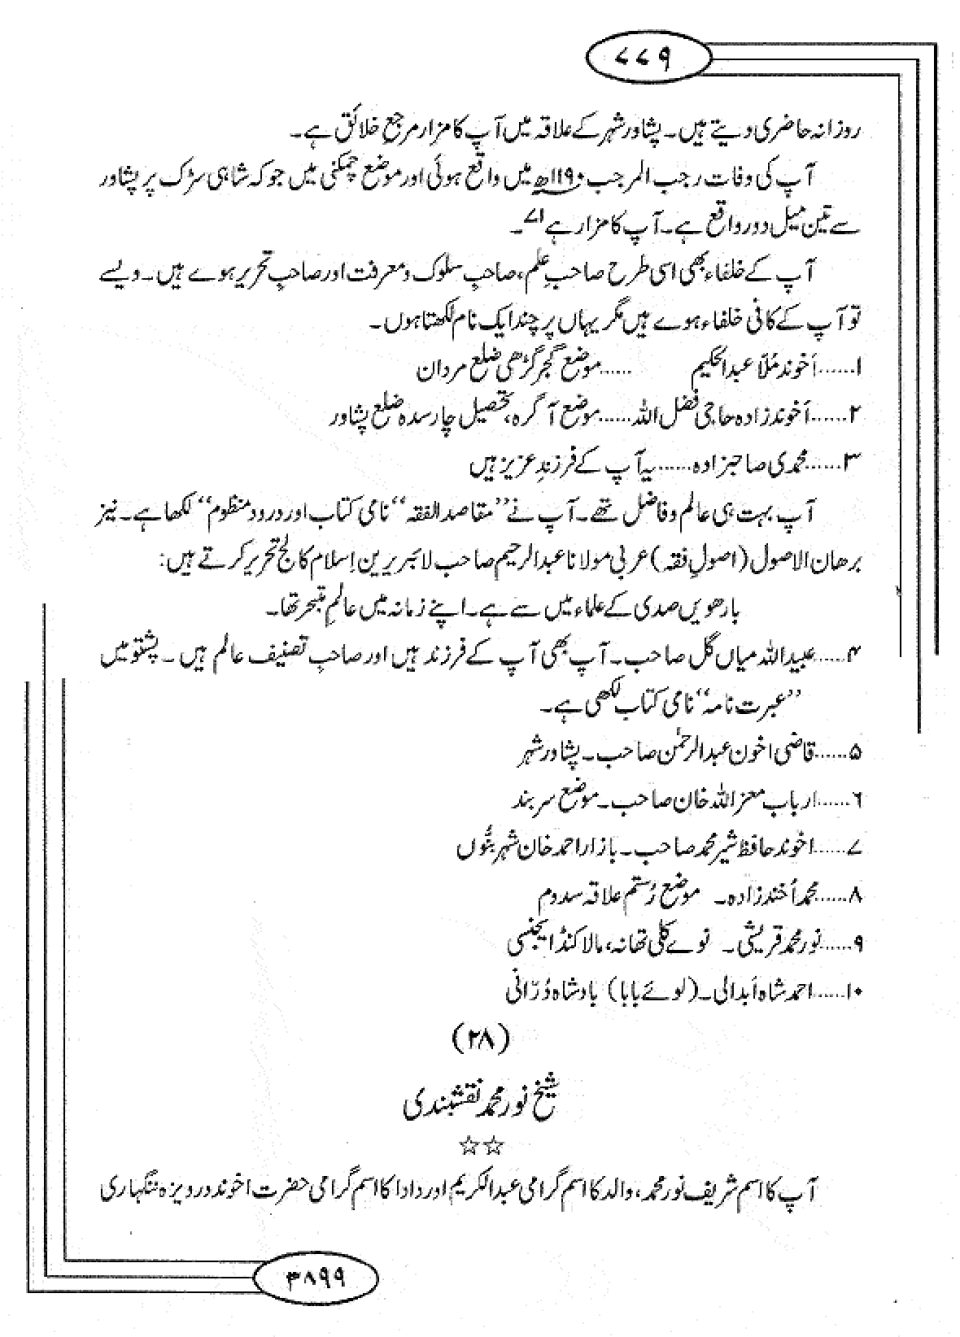 ۷۷۹
روزانہ حاضری دیتے ہیں۔ پشاور شہر کے علاقہ میں آپ کا مزار مرجع خلائق ہے۔
آپ کی وفات رجب المرجب ۱۱۹۰ھ میں واقع ہوئی اور موضع چمکنی میں جو کہ شاہی سڑک پر پشاور
سے تین میل دور واقع ہے۔ آپ کا مزار ہے ۱؎۔
آپ کے خلفاء بھی اسی طرح صاحبِ علم، صاحبِ سلوک و معرفت اور صاحبِ تحریر ہوے ہیں۔ ویسے
تو آپ کے کافی خلفاء ہوے ہیں مگر یہاں پر چند ایک نام لکھتا ہوں۔
۱......اَخوند مُلّا عبدالحکیم ......موضع گجر گڑھی ضلع مردان
۲......اَخوندزادہ حاجی فضل اللہ......موضع آگرہ، تحصیل چارسدہ ضلع پشاور
۳......محمدی صاحبزادہ......یہ آپ کے فرزندِ عزیز ہیں
آپ بہت ہی عالم و فاضل تھے۔ آپ نے ’’مقاصد الفقہ‘‘ نامی کتاب اور درود منظوم‘‘ لکھا ہے۔ نیز
برھان الاصول (اصولِ فقہ) عربی مولانا عبدالرحیم صاحب لائبریرین اِسلام کالج تحریر کرتے ہیں:
بارھویں صدی کے علماء میں سے ہے۔ اپنے زمانہ میں عالمِ متبحر تھا۔
۴.....عبیداللہ میاں گل صاحب۔ آپ بھی آپ کے فرزند ہیں اور صاحبِ تصنیف عالم ہیں۔ پشتو میں
’’عبرت نامہ‘‘ نامی کتاب لکھی ہے۔
۵......قاضی اخون عبدالرحمٰن صاحب۔ پشاور شہر
۶......ارباب معزاللہ خان صاحب۔ موضع سربند
۷......اخوند حافظ شیر محمد صاحب۔ بازار احمد خان شہر بنُّوں
۸......محمد اُخندزادہ۔ موضع رُستم علاقہ سدوم
۹......نور محمد قریشی۔ نوے کلی تھانہ، مالاکنڈ ایجنسی
۱۰......احمد شاہ اَبدالی۔ (لوئے بابا) بادشاہ دُرّانی
(۲۸)
شیخ نور محمد نقشبندی
☆☆
آپ کا اسم شریف نور محمد، والد کا اسم گرامی عبدالکریم اور دادا کا اسم گرامی حضرت اخوند درویزہ ننگہاری
۳۸۹۹